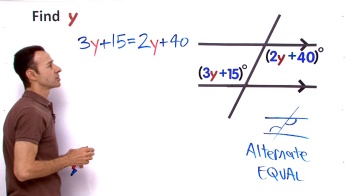 Find y
3y+15=2y+40
(2y+40)°
(3y+15)°
Alternate
EQUAL